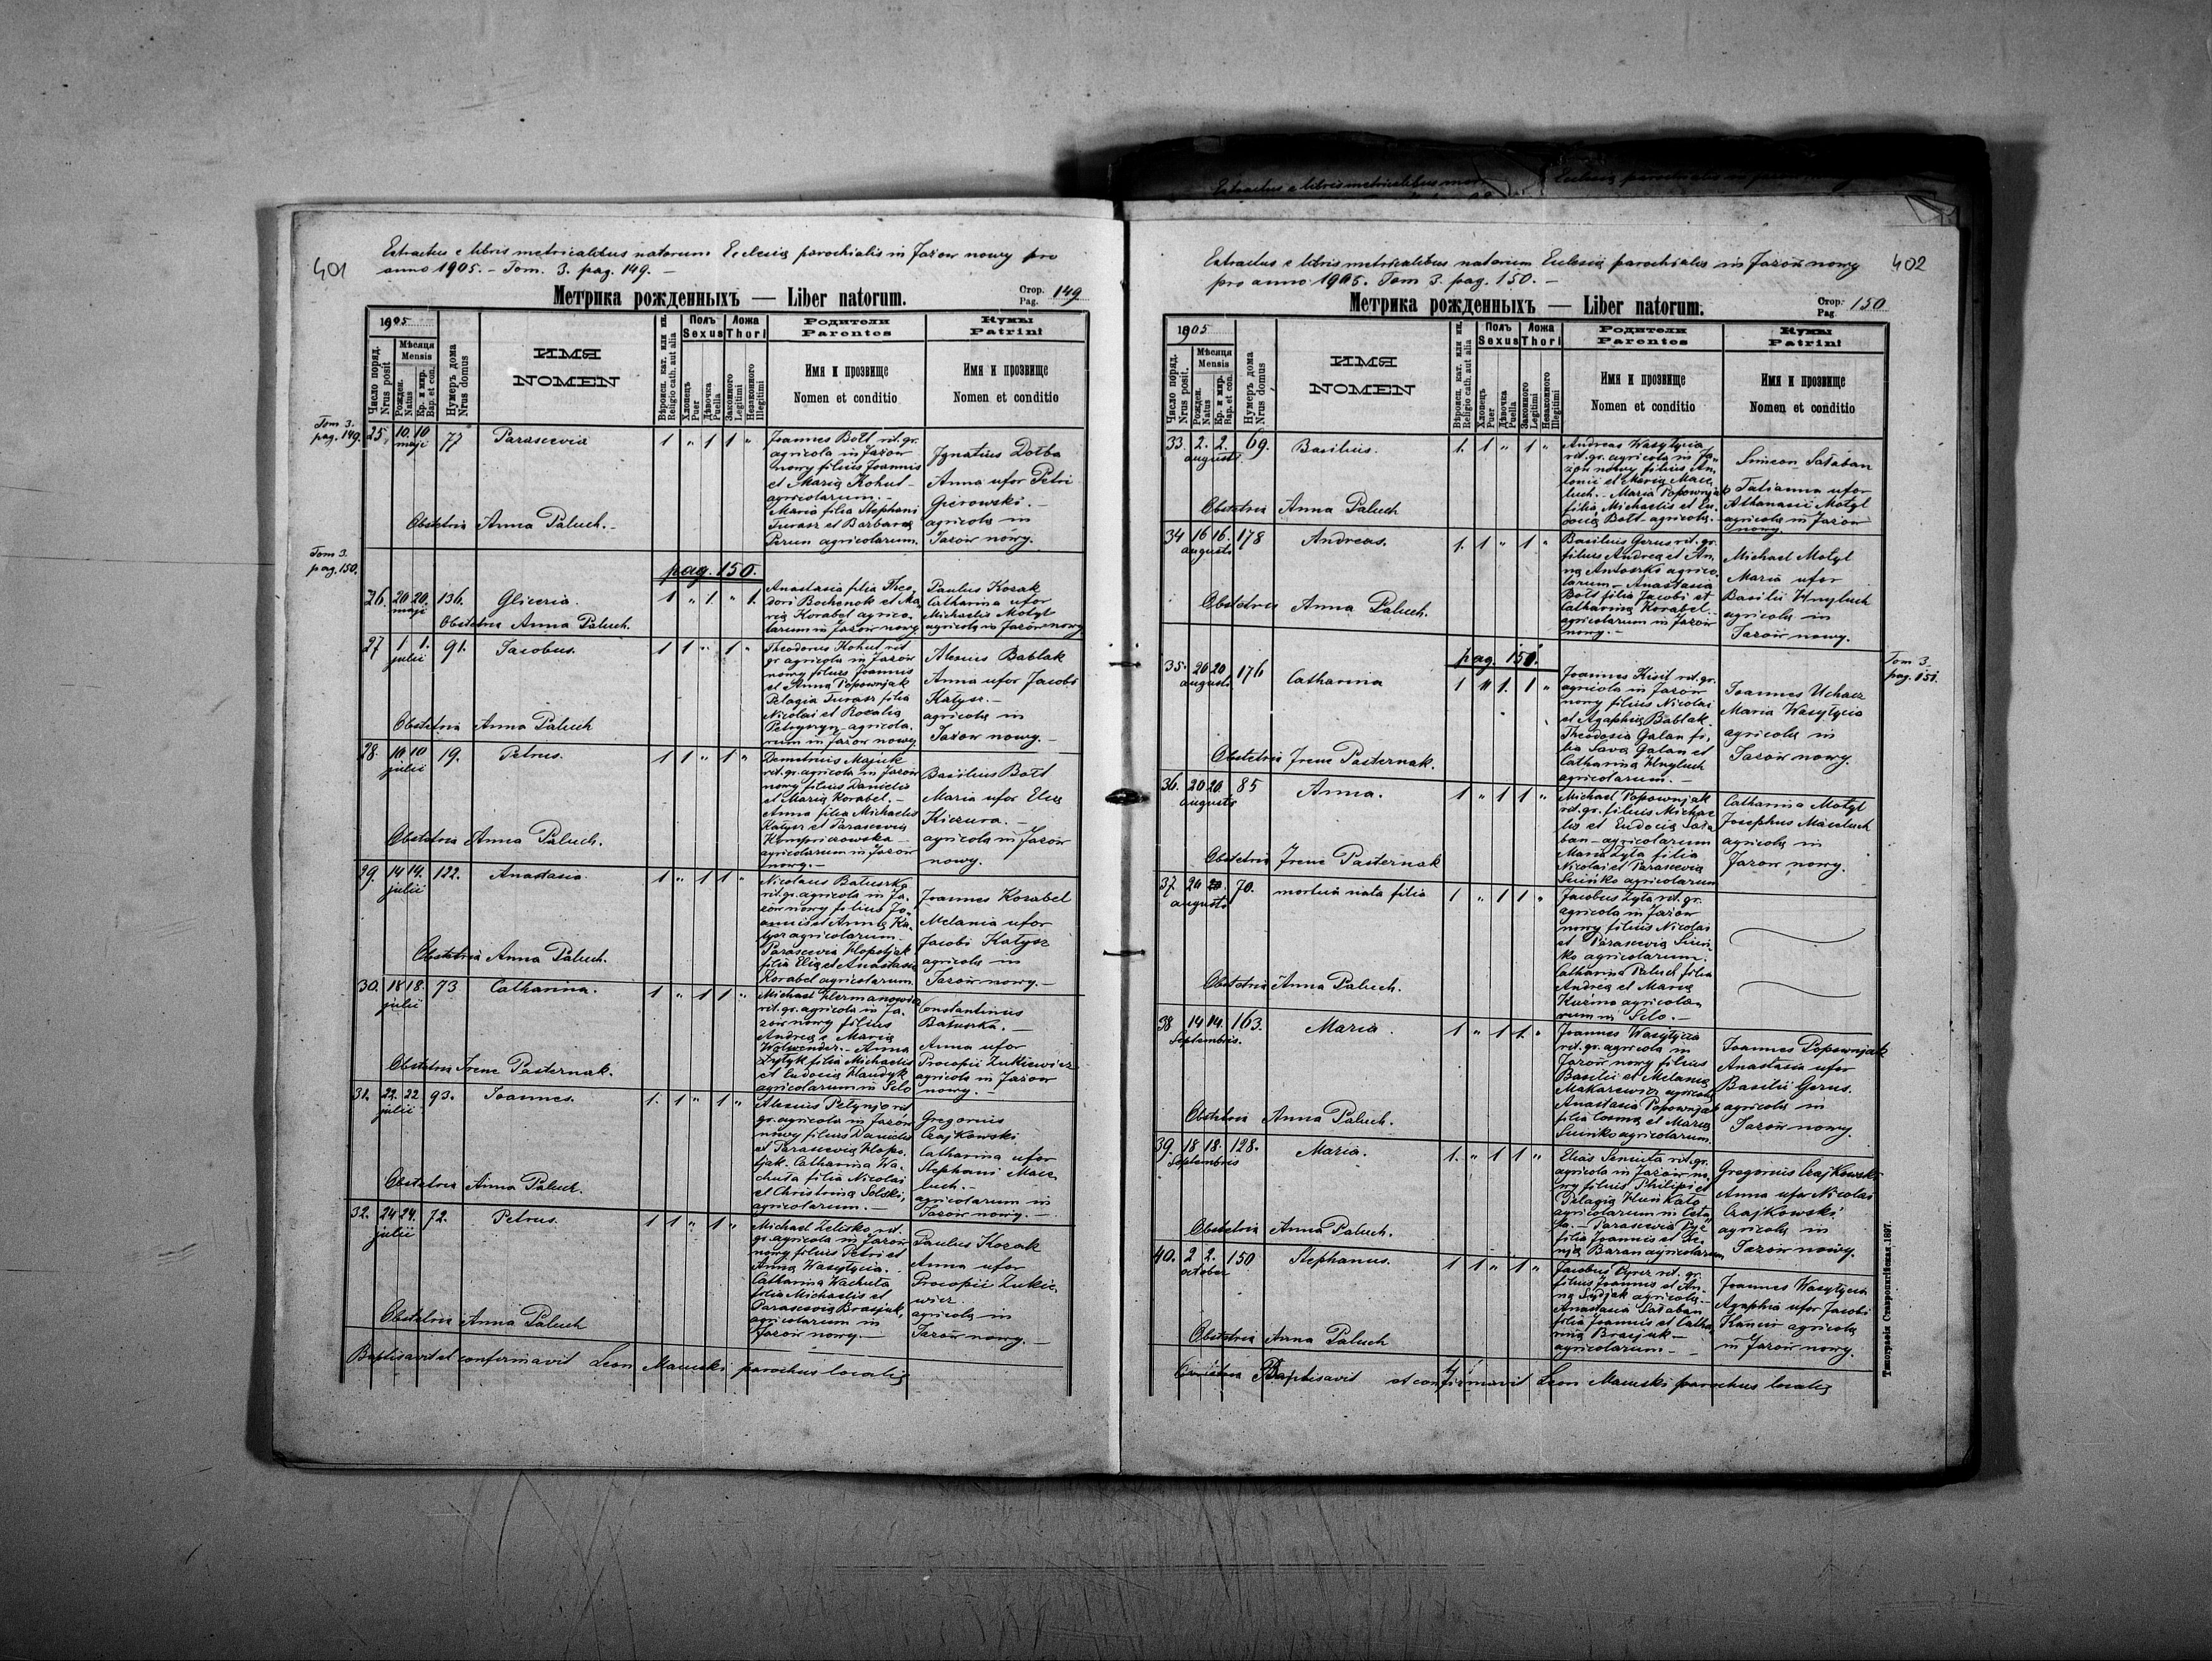 401
Extractus e libris metricalibus natorum Ecclesiæ parochialis in Jazow nowy pro
anno 1905. – Tom. 3. pag. 149. –
Метрика рожденныхъ — Liber natorum.
Стор. Pag. 149
1905
Число поряд. Nrus posit
Мѣсяця Mensis
Рожден. Natus
Кр. и мир. Bap. et con.
Нумеръ дома Nrus domus
ИМЯ
NOMEN
Вѣроисп. кат. или ин. Religio cath. aut alia
Полъ Sexus
Хлопецъ Puer
Дѣвочка Puella
Ложа Thori
Законного Legitimi
Незаконного Illegitimi
Родители
Parentes
Имя и прозвище
Nomen et conditio
Кумы
Patrini
Имя и прозвище
Nomen et conditio
Tom 3.
pag. 149.
25. 10. 10 maji 77 Parascevia 1 " 1 1 "
Joannes Bott rit. gr.
agricola in Jazow
nowy filius Joannis
et Mariæ Kohut –
agricolarum. –
Maria filia Stephani
Turasz et Barbaræ
Perun agricolarum.
Ignatius Dotba
Anna uxor Petri
agricolæ in
Jazow nowy.
Obstetrix Anna Paluch. –
Tom 3.
pag. 150.
pag. 150.
26. 20 20. maji 136. Gliceria. 1 " 1. " 1.
Anastasia filia Theo-
dori Bochenok et Ma-
riæ Korabel agrico-
larum in Jazow nowy
Paulus Kozak
Catharina uxor
Michaelis Motyl
agricolæ in Jazow nowy
Obstetrix Anna Paluch.
27 1 1. julii 91. Jacobus. 1 1 " 1 "
Theodorus Kohut rit
gr agricola in Jazow
nowy filius Joannis
et Anna Popownjak
Pelagia Turasz filia
Nicolai et Rozalia
rum in Jazow nowy.
Alexius Bablak
Anna uxor Jacobi
Katysz. –
agricolæ in
Jazow nowy. –
Obstetrix Anna Paluch
28. 10 10 julii 19. Petrus. 1 1 " 1 "
Demetrius Majuk
rit. gr. agricola in Jazow
nowy filius Danielis
et Mariæ Korabel. –
Anna filia Michaelis
Katysz et Parascevia
agricolarum in Jazow
nowy. –
Basilius Bott
Maria uxor Eliæ
Kiczura. –
agricolæ in Jazow
nowy.
Obstetrix Anna Paluch.
29. 14 14. julii 122. Anastasia 1 " 1 1 "
Nicolaus Batuszka
rit. gr. agricola in Ja-
zow nowy filius Jo-
annis et Annæ Ka-
tysz agricolarum –
Parascevia Klopotjak
filia Eliæ et Anastasiæ
Korabel agricolarum
Joannes Korabel
Melania uxor
Jacobi Katysz
agricolæ in
Jazow nowy. –
Obstetrix Anna Paluch.
30. 18 18. julii 73 Catharina. 1 " 1 1 "
Michael Hermanowicz
rit. gr. agricola in Ja-
zow nowy filius
Andreæ e Maria
Anna
filia Michaelis
et Eudocia
agricolarum in Selo
Constantinus
Batuszka. –
Anna uxor
Procopii Zukiewicz
agricolæ in Jazow
nowy. –
Obstetrix Irene Pasternak.
31. 22. 22 julii 93. Joannes. 1. 1 " 1 "
rit
gr. agricola in Jazow
nowy filius Danielis
et Parascevia Klopo-
tjak. Catharina Wa-
chuta filia Nicolai
et Christina Solski,
agricolarum. –
Gregorius
Czajkowski
Catharina uxor
Stephani Mace-
luch. –
agricolarum in
Jazow nowy. –
Obstetrix Anna Paluch.
32. 24 24. julii 72. Petrus. 1 1 " 1 "
Michael Zelisko rit.
gr. agricola in Jazow
nowy filius Petri et
Anna Wasytycia.
Catharina Wachuta
filia Michaelis et
Parascevia Brasjuk,
agricolarum in
Jazow nowy. –
Paulus Kozak
Anna uxor
Procopii Zukie-
wicz
agricolæ in
Jazow nowy. –
Obstetrix Anna Paluch
Baptisavit et confirmavit Leon parochus localis
402
Extractus e libris metricalibus natorum Ecclesiæ parochialis in Jazow nowy
pro anno 1905. Tom 3. pag. 150. –
Метрика рожденныхъ — Liber natorum.
Стор. Pag. 150
1905
Число поряд. Nrus posit.
Мѣсяця Mensis
Рожден. Natus
Кр. и мир. Bap. et con.
Нумеръ дома Nrus domus
ИМЯ
NOMEN
Вѣроисп. кат. или ин. Religio cath. aut alia
Полъ Sexus
Хлопецъ Puer
Дѣвочка Puella
Ложа Thori
Законного Legitimi
Незаконного Illegitimi
Родители
Parentes
Имя и прозвище
Nomen et conditio
Кумы
Patrini
Имя и прозвище
Nomen et conditio
33. 2. 2. augusti 69. Basilius. 1. 1 " 1 "
Andreas Wasytycia
rit. gr. agricola in Ja-
zow nowy filius An-
tonii et Mariæ Mace-
luch. – Maria Popownjak
filia Michaelis et Eu-
dociæ Bott – agricolæ. –
Simeon Sataban
Tatianna uxor
Athanasii Motyl
agricolæ in Jazow
nowy.
Obstetrix Anna Paluch
34 16 16. augusti 178 Andreas. 1. 1 " 1 "
Basilius Gerus rit. gr.
filius Andreæ et An-
næ Antoszko agrico-
larum – Anastasia
Bott filia Jacobi et
Catharinæ Korabel –
agricolarum in Jazow
nowy. –
Michael Motyl
Maria uxor
Basilii Hnyluch
agricolæ in
Jazow nowy.
Obstetrix Anna Paluch.
pag. 150.
Tom 3.
pag. 151.
35. 20 20 augusti 176 Catharina 1 " 1. 1 "
Joannes Kisil rit. gr.
agricola in Jazow
nowy filius Nicolai
et Agaphiæ Bablak.
Theodosia Galan fi-
lia Savæ Galan et
Catharina Hnyluch
agricolarum. –
Joannes Uchacz
Maria Wasytycia
agricolæ in
Jazow nowy.
Obstetrix Irene Pasternak.
36. 20 20 augusti 85 Anna. 1 " 1 1 "
Michael Popownjak
rit. gr. filius Michae-
lis et Eudocia Sata-
ban – agricolarum
Maria Zyta filia
Nicolai et Parascevia
agricolarum
Catharina Motyl
Josephus Maceluch
agricolæ in
Jazow nowy.
Obstetrix Irene Pasternak
37. 20 20. augusti 70. mortua nata filia 1 " 1 1 "
Jacobus Zyta rit. gr.
agricola in Jazow
nowy filius Nicolai
et Parascevia
agricolarum.
Catharina Paluch filia
Andreæ et Maria
Kuzmo agricola-
rum in Selo. –
Obstetrix Anna Paluch.
38 14 14. Septembris. 163. Maria. 1 " 1 1. "
Joannes Wasytycia
rit. gr. agricola in
Jazow nowy filius
Basilii et Melania
Makarewicz agricolæ
Anastasia Popownjak
filia Cosmæ et Maria
agricolarum.
Joannes Popownjak
Anastasia uxor
Basilii Gerus.
agricolæ in
Jazow nowy.
Obstetrix Anna Paluch.
39. 18 18. Septembris 128. Maria. 1. " 1 1 "
Elias rit. gr.
agricola in Jazow no-
wy filius Philipi et
Pelagia
agricolarum in
Parascevia
filia Joannis et
Baran agricolarum
Gregorius Czajkowski
Anna uxor Nicolai
Czajkowski
agricolæ in
Jazow nowy.
Obstetrix Anna Paluch.
40. 2 2. october 150 Stephanus. 1 1 " 1 "
Jacobus rit. gr.
filius Joannis et An-
næ agricolæ –
Anastasia Sataban
filia Joannis et Catha-
rina Brasjuk –
agricolarum –
Joannes Wasytycia
Agaphia uxor Jacobi
agricolæ
in Jazow nowy.
Obstetrix Anna Paluch
Baptisavit et confirmavit Leon parochus localis
Типографія Ставропигійская. 1897.